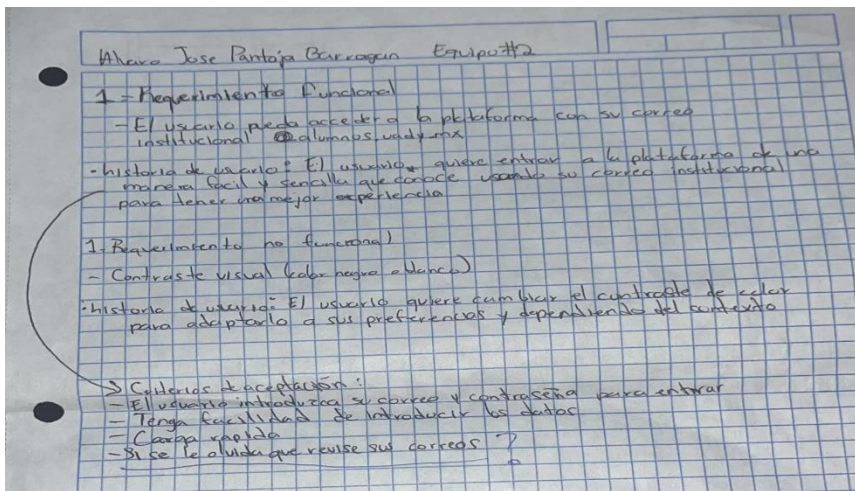 Alvaro Jose Pantoja Barragan Equipo #2
1 = Requerimiento Funcional
- El usuario pueda acceder a la plataforma con su correo
institucional @alumnos.uady.mx
· historia de usuario: El usuario quiere entrar a la plataforma de una
manera fácil y sencilla que conoce usando su correo institucional
para tener una mejor experiencia
1- Requerimiento no funcional
- Contraste visual (color negro o blanco)
· historia de usuario: El usuario quiere cambiar el contraste de color
para adaptarlo a sus preferencias y dependiendo del contexto
Criterios de aceptación:
- El usuario introduzca su correo y contraseña para entrar
- Tenga facilidad de introducir los datos
- Carga rapida
- Si se le olvida que revise sus correos ?